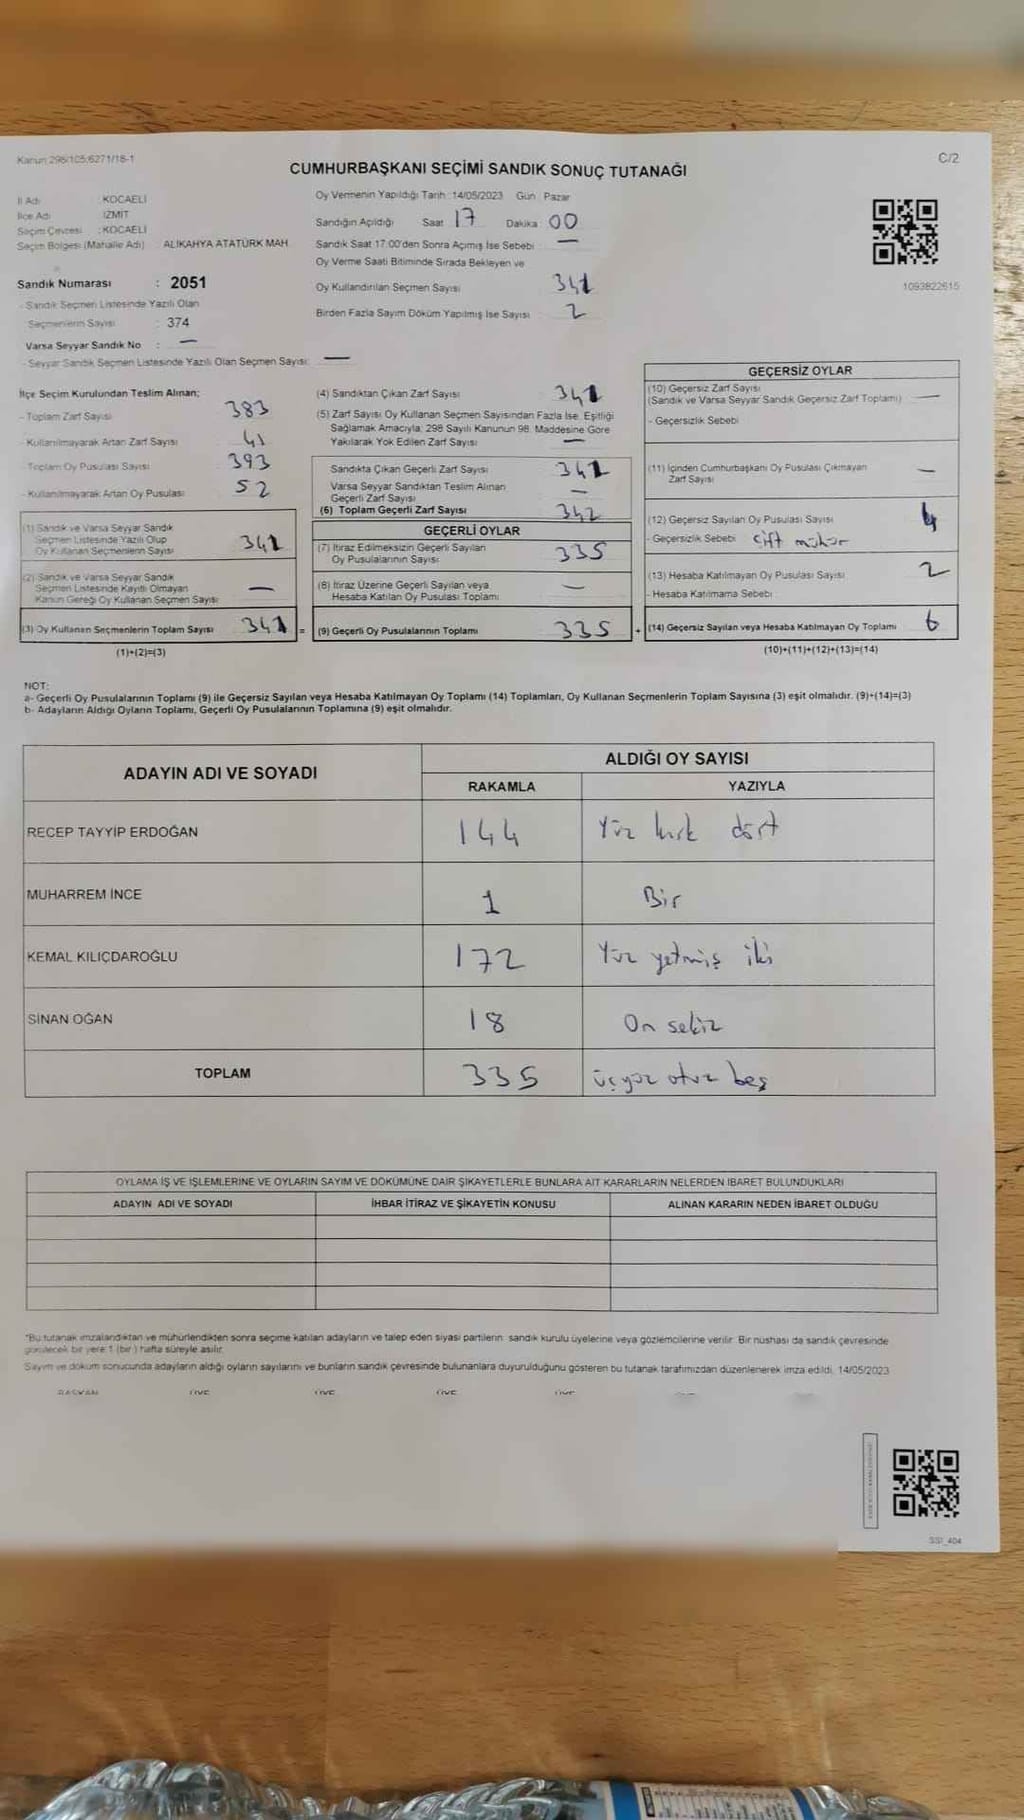 Kanun 298/105;6271/18-1
C/2
CUMHURBAŞKANI SEÇİMİ SANDIK SONUÇ TUTANAĞI
İl Adı : KOCAELİ
İlçe Adı : İZMİT
Seçim Çevresi : KOCAELİ
Seçim Bölgesi (Mahalle Adı) ALİKAHYA ATATÜRK MAH.
Sandık Numarası : 2051
- Sandık Seçmen Listesinde Yazılı Olan
Seçmenlerin Sayısı : 374
Varsa Seyyar Sandık No : —
- Seyyar Sandık Seçmen Listesinde Yazılı Olan Seçmen Sayısı: —
Oy Vermenin Yapıldığı Tarih :14/05/2023 Gün : Pazar
Sandığın Açıldığı Saat 17 Dakika 00
Sandık Saat 17:00'den Sonra Açımış İse Sebebi —
Oy Verme Saati Bitiminde Sırada Bekleyen ve
Oy Kullandırılan Seçmen Sayısı 341
Birden Fazla Sayım Döküm Yapılmış İse Sayısı 2
1093822615
İlçe Seçim Kurulundan Teslim Alınan;
- Toplam Zarf Sayısı 383
- Kullanılmayarak Artan Zarf Sayısı 41
- Toplam Oy Pusulası Sayısı 393
- Kullanılmayarak Artan Oy Pusulası 52
(1) Sandık ve Varsa Seyyar Sandık
Seçmen Listesinde Yazılı Olup
Oy Kullanan Seçmenlerin Sayısı 341
(2) Sandık ve Varsa Seyyar Sandık
Seçmen Listesinde Kayıtlı Olmayan
Kanun Gereği Oy Kullanan Seçmen Sayısı —
(3) Oy Kullanan Seçmenlerin Toplam Sayısı 341 =
(1)+(2)=(3)
(4) Sandıktan Çıkan Zarf Sayısı 341
(5) Zarf Sayısı Oy Kullanan Seçmen Sayısından Fazla İse, Eşitliği
Sağlamak Amacıyla, 298 Sayılı Kanunun 98. Maddesine Göre
Yakılarak Yok Edilen Zarf Sayısı —
Sandıkta Çıkan Geçerli Zarf Sayısı 341
Varsa Seyyar Sandıktan Teslim Alınan
Geçerli Zarf Sayısı —
(6) Toplam Geçerli Zarf Sayısı 342
GEÇERLİ OYLAR
(7) İtiraz Edilmeksizin Geçerli Sayılan
Oy Pusulalarının Sayısı 335
(8) İtiraz Üzerine Geçerli Sayılan veya
Hesaba Katılan Oy Pusulası Toplamı —
(9) Geçerli Oy Pusulalarının Toplamı 335 +
GEÇERSİZ OYLAR
(10) Geçersiz Zarf Sayısı
(Sandık ve Varsa Seyyar Sandık Geçersiz Zarf Toplamı) —
- Geçersizlik Sebebi
(11) İçinden Cumhurbaşkanı Oy Pusulası Çıkmayan
Zarf Sayısı —
(12) Geçersiz Sayılan Oy Pusulası Sayısı 4
- Geçersizlik Sebebi Çift mühür
(13) Hesaba Katılmayan Oy Pusulası Sayısı 2
- Hesaba Katılmama Sebebi
(14) Geçersiz Sayılan veya Hesaba Katılmayan Oy Toplamı 6
(10)+(11)+(12)+(13)=(14)
NOT:
a- Geçerli Oy Pusulalarının Toplamı (9) ile Geçersiz Sayılan veya Hesaba Katılmayan Oy Toplamı (14) Toplamları, Oy Kullanan Seçmenlerin Toplam Sayısına (3) eşit olmalıdır. (9)+(14)=(3)
b- Adayların Aldığı Oyların Toplamı, Geçerli Oy Pusulalarının Toplamına (9) eşit olmalıdır.
ADAYIN ADI VE SOYADI
ALDIĞI OY SAYISI
RAKAMLA YAZIYLA
RECEP TAYYİP ERDOĞAN 144 Yüz kırk dört
MUHARREM İNCE 1 Bir
KEMAL KILIÇDAROĞLU 172 Yüz yetmiş iki
SİNAN OĞAN 18 On sekiz
TOPLAM 335 üçyüz otuz beş
OYLAMA İŞ VE İŞLEMLERİNE VE OYLARIN SAYIM VE DÖKÜMÜNE DAİR ŞİKAYETLERLE BUNLARA AİT KARARLARIN NELERDEN İBARET BULUNDUKLARI
ADAYIN ADI VE SOYADI İHBAR İTİRAZ VE ŞİKAYETİN KONUSU ALINAN KARARIN NEDEN İBARET OLDUĞU
*Bu tutanak imzalandıktan ve mühürlendikten sonra seçime katılan adayların ve talep eden siyasi partilerin sandık kurulu üyelerine veya gözlemcilerine verilir. Bir nüshası da sandık çevresinde
görülecek bir yere 1 (bir) hafta süreyle asılır.
Sayım ve döküm sonucunda adayların aldığı oyların sayılarını ve bunların sandık çevresinde bulunanlara duyurulduğunu gösteren bu tutanak tarafımızdan düzenlenerek imza edildi. 14/05/2023
BAŞKAN ÜYE ÜYE ÜYE ÜYE
SSI_404